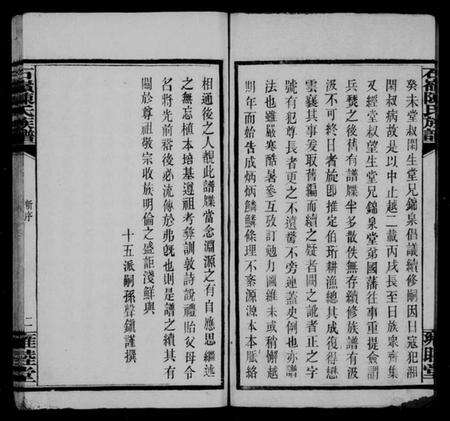 癸未堂叔閏生堂兄錦泉倡議續修嗣因日寇犯湘
閏叔病故是以中止越二載丙戌長至日族眾齊集
又經堂叔望生堂兄錦泉堂弟國藩往事重提僉謂
兵燹之後舊有譜牒半多散佚無存續修族譜有汲
汲不可終日者旋即推定伯珩耕漁總其成復得懋
雲襄其事爰取舊編而續之疑者闕之訛者正之字
號有犯尊長者更之不遺嗇不旁遝蓋史例也亦譜
法也雖嚴寒酷暑參互攷訂勉力圖維未或稍懈越
明年而始告成炳炳麟麟條理不紊源源本本脈絡
石嶺陳氏族譜
雍睦堂
相通後之人覩此譜牒當念淵源之有自應思繼述
之無忘植本培基道祖考彝訓敦詩說禮貽父母令
名將先前裕後必流傳於弗替也則是譜之續其有
關於尊祖敬宗收族明倫之盛詎淺鮮與
十五派嗣孫聲鎮謹撰
石嶺陳氏族譜
新序
二
雍睦堂